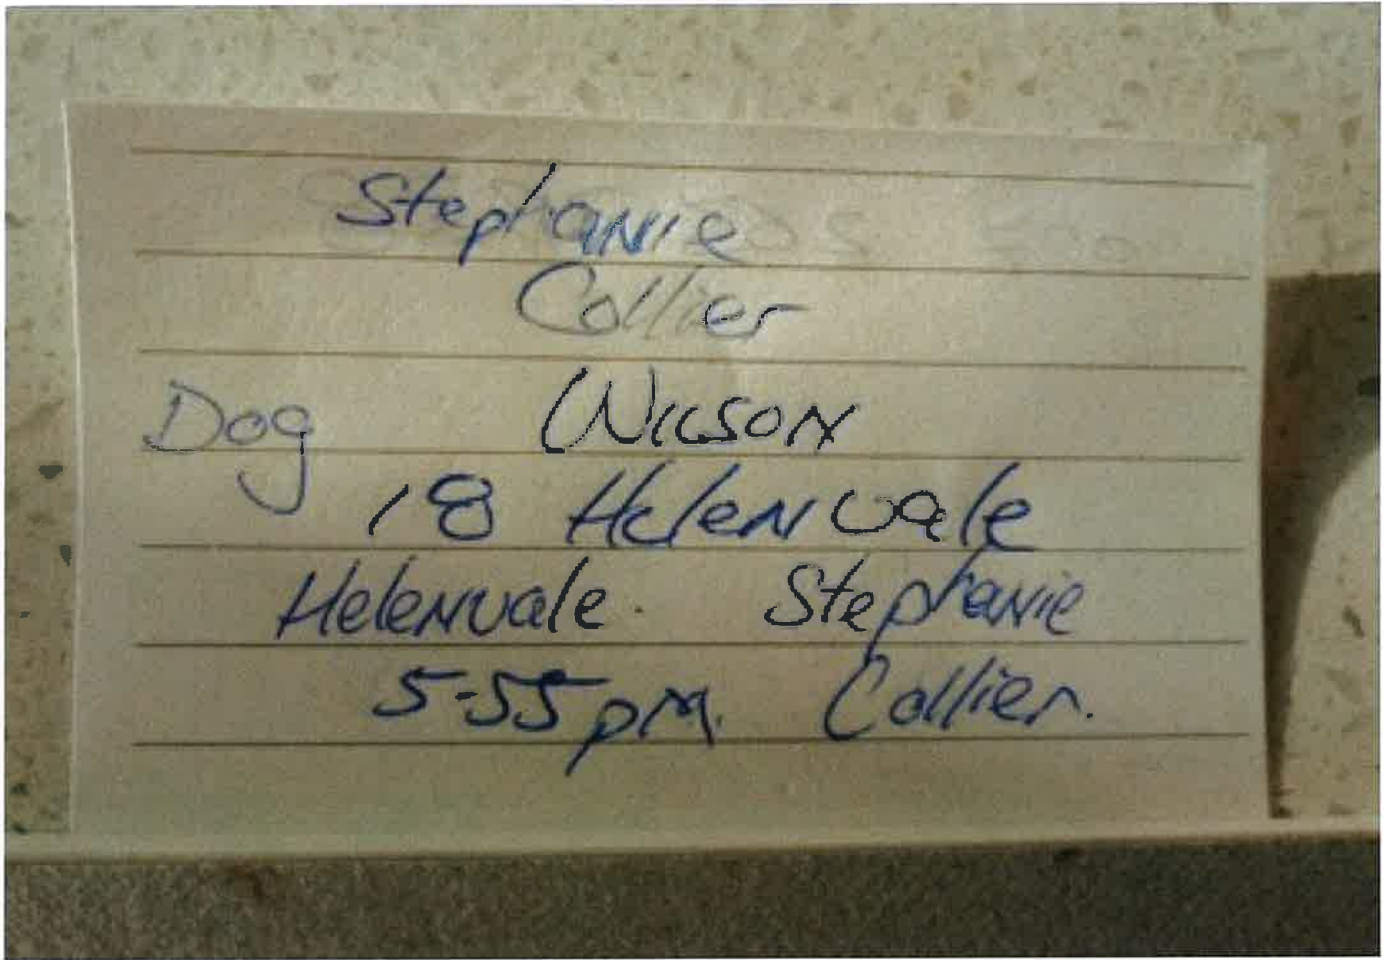 Stephanie
Collier
Dog Wilson
18 Helenvale
Helenvale. Stephanie
5-55pm. Collier.